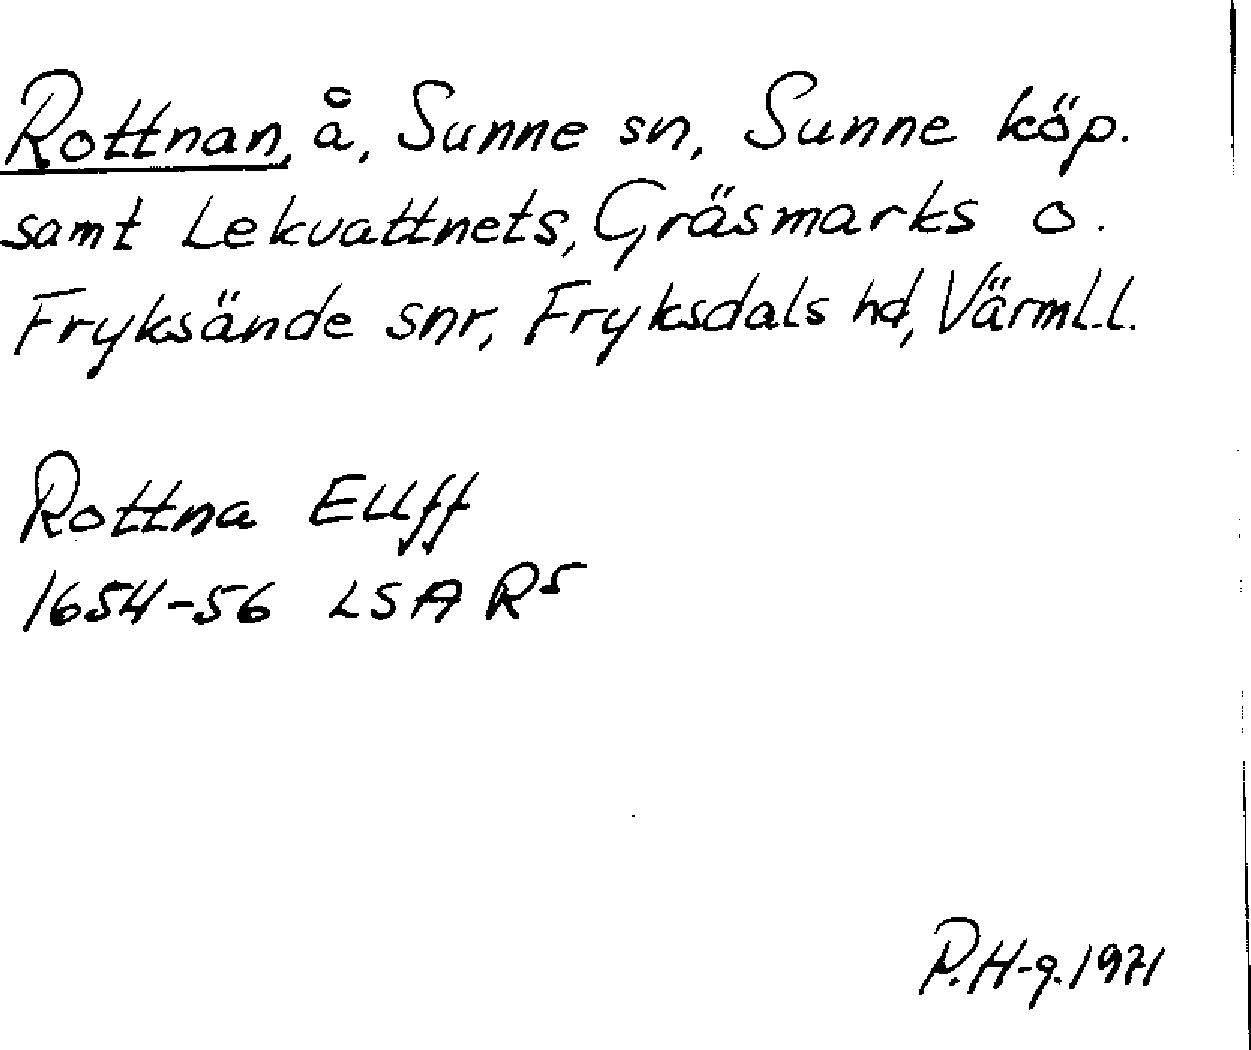 Rottnan, å, Sunne sn, Sunne köp.
samt Lekvattnets, Gräsmarks o.
Fryksände snr, Fryksdals hd, Värml.l.
Rottna Elff
1654-56 LSA R5
P.H-g. 1971